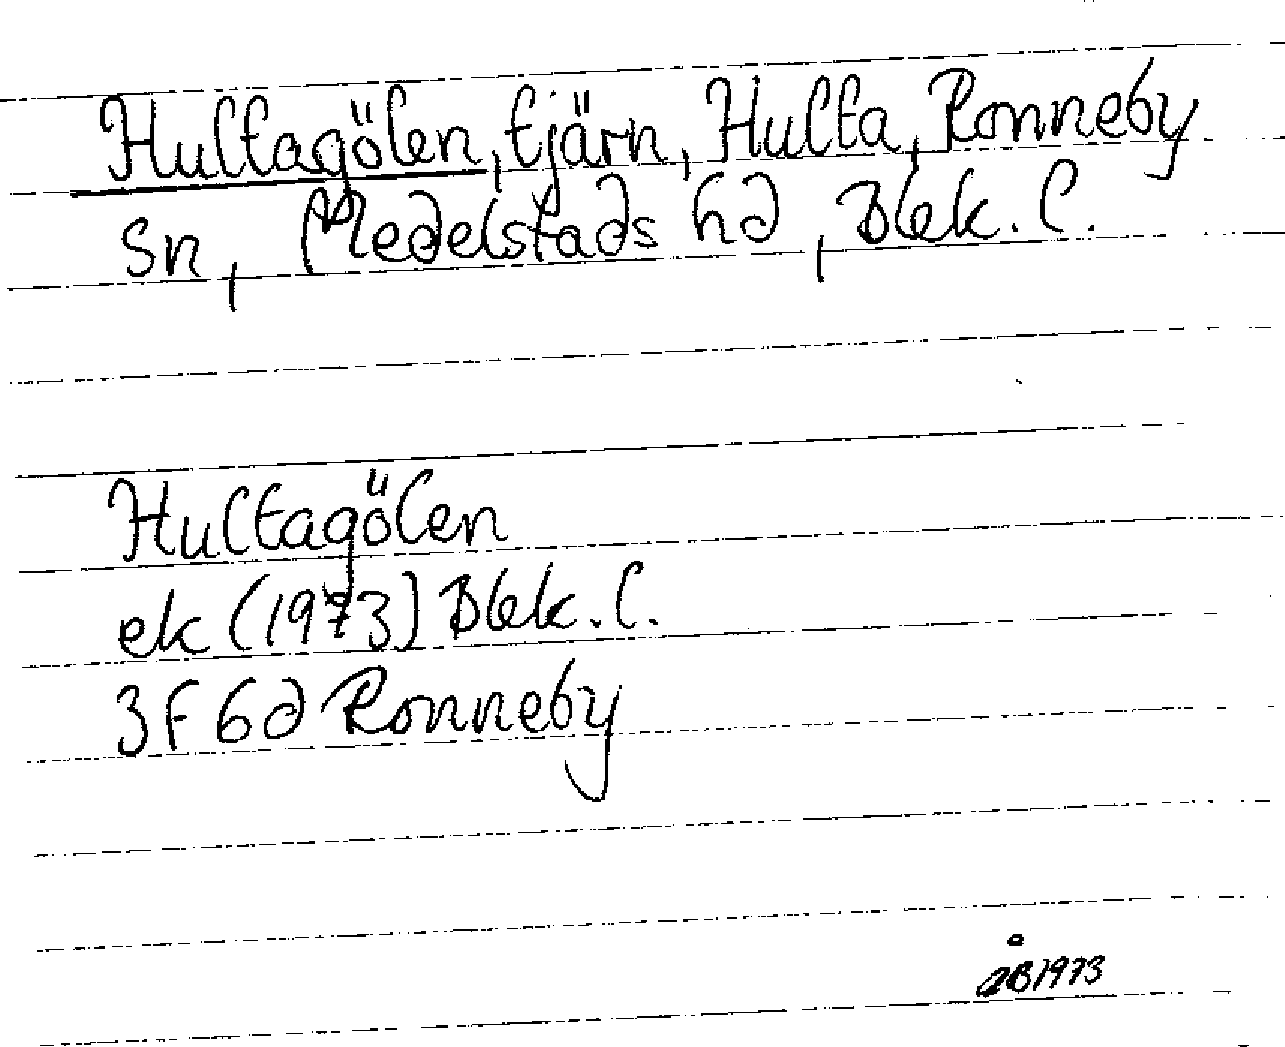 Hultagölen, tjärn, Hulta, Ronneby
sn, Medelstads hd, Blek. l.
Hultagölen
ek (1973) Blek. l.
3F 6d Ronneby
åB 1973